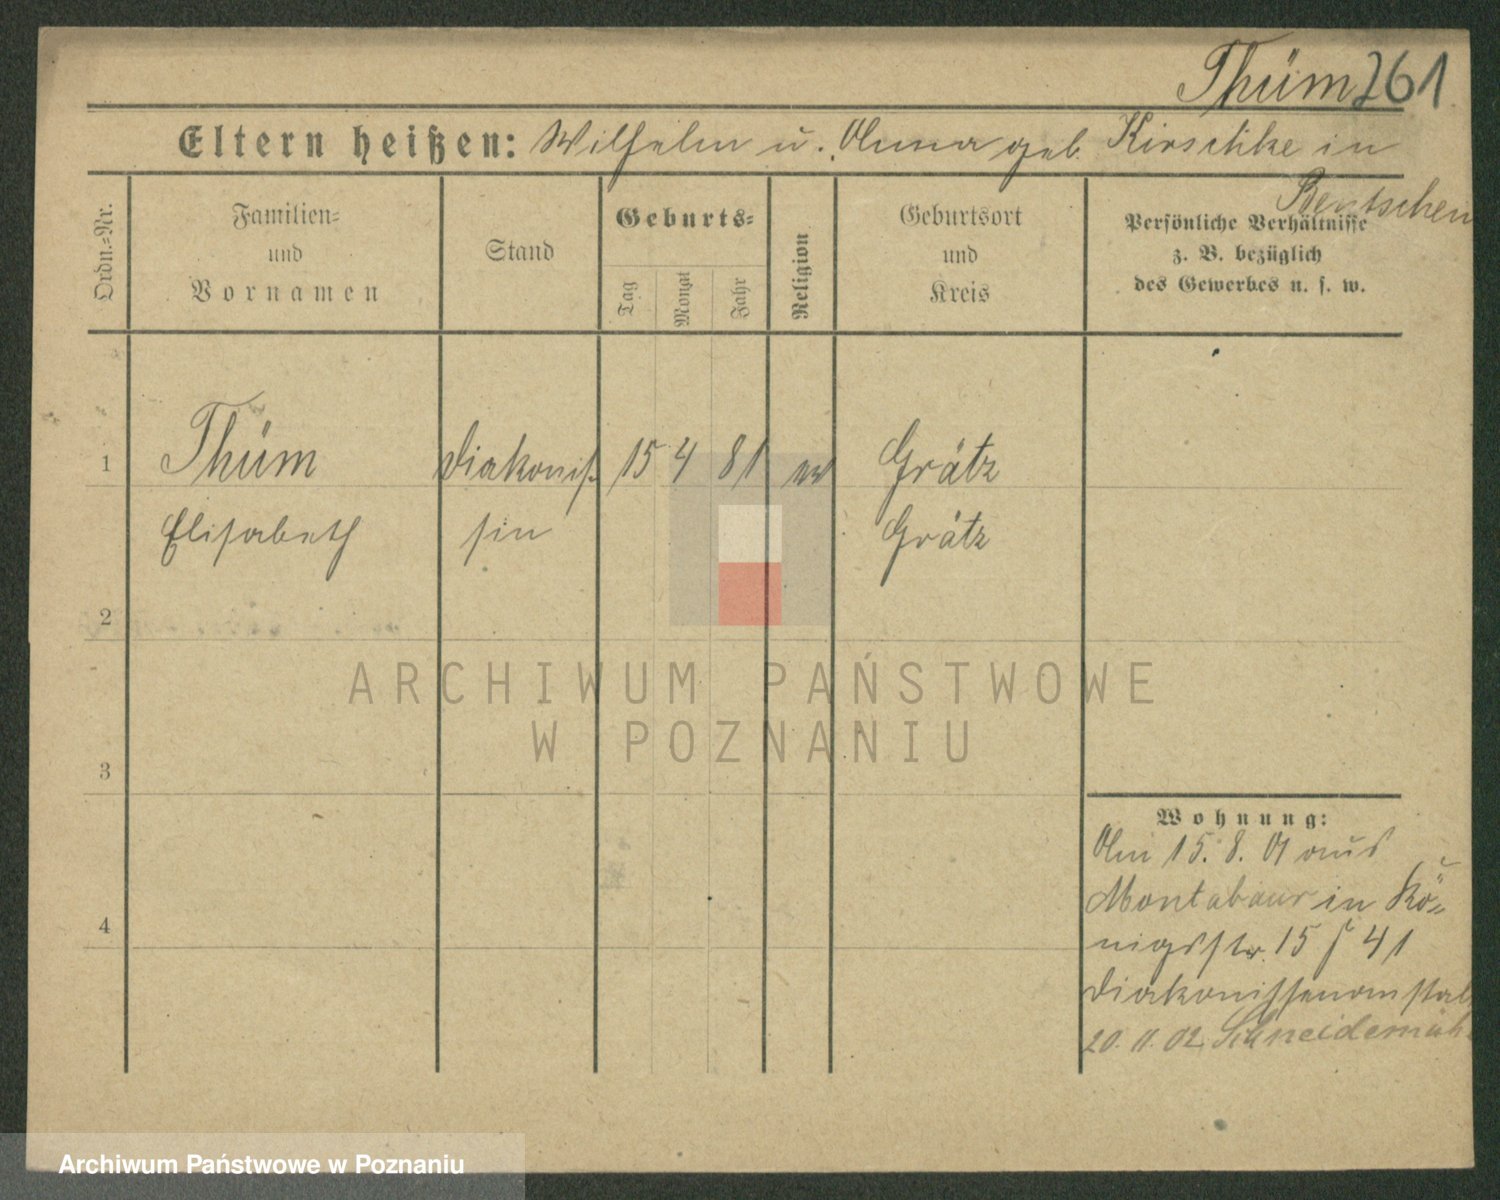 Thüm 261
Eltern heißen: Wilhelm u. Anna geb. Kirschke in
Bentschen
Ordn.=Nr.
Familien=
und
Vornamen
Stand
Geburts=
Tag
Monat
Jahr
Religion
Geburtsort
und
Kreis
Persönliche Verhältnisse
z. B. bezüglich
des Gewerbes u. s. w.
1 Thüm Diakonis= 15 4 81 ev Grätz
Elisabeth sin Grätz
2
3
4
Wohnung:
Am 15. 8. 01 aus
Montabaur in Kö=
nigsstr. 15 41
Diakonissenanstalt
20. 11. 02. Schneidemühl
ARCHIWUM PAŃSTWOWE
W POZNANIU
Archiwum Państwowe w Poznaniu